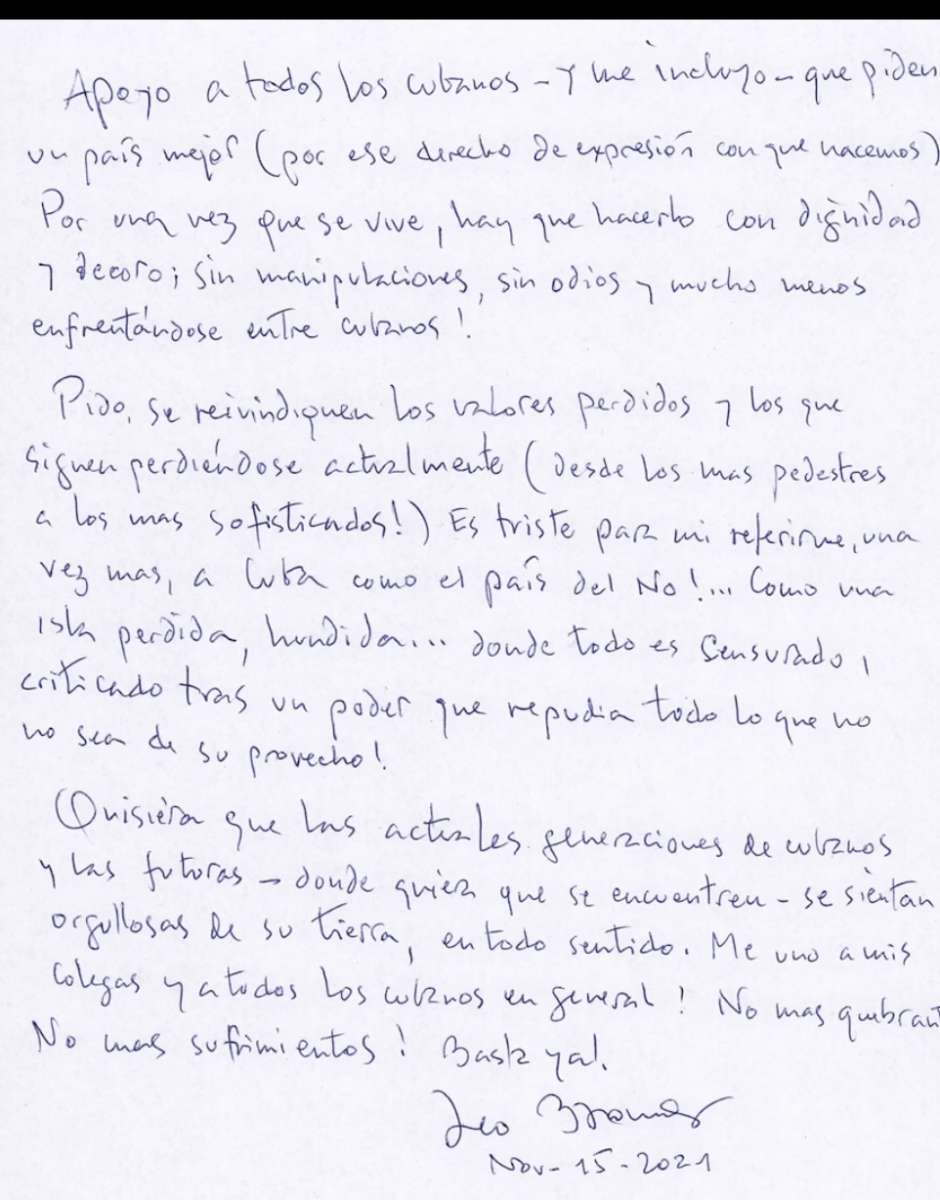 Apoyo a todos los cubanos - y me incluyo - que piden
un país mejor (por ese derecho de expresión con que nacemos)
Por una vez que se vive, hay que hacerlo con dignidad
y decoro; sin manipulaciones, sin odios y mucho menos
enfrentándose entre cubanos!
Pido, se reivindiquen los valores perdidos y los que
siguen perdiéndose actualmente (desde los mas pedestres
a los mas sofisticados!) Es triste para mi referirme, una
vez mas, a Cuba como el país del No!... Como una
isla perdida, hundida... donde todo es Sensurado,
criticado tras un poder que repudia todo lo que no
no sea de su provecho!
Quisiera que las actuales generaciones de cubanos
y las futuras - donde quiera que se encuentren - se sientan
orgullosas de su tierra, en todo sentido. Me uno a mis
colegas y a todos los cubanos en general! No mas qubrant
No mas sufrimientos! Basta ya!.
Leo Brouwer
Nov-15-2021